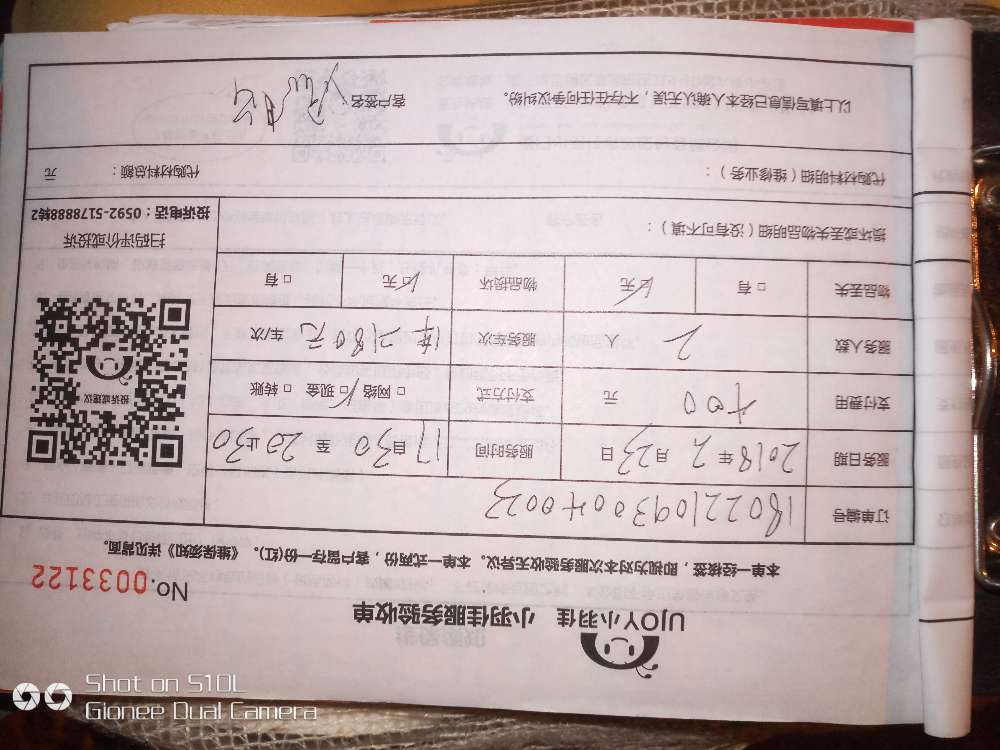 UJOY小羽佳 小羽佳服务验收单
No.0033122
本单一经核签，即视为对本次服务验收无异议。本单一式两份，客户留存一份(红)。《维保须知》详见背面。
订单编号 1802210930040023
服务日期 2018年2月23日 服务时间 17时30 至 20止30
支付费用 400 元 支付方式 □ 网络 □ 现金 □ 转账
服务人数 2 人 服务车次 车/次
投诉或建议
物品丢失 □ 有 □ 无 物品损坏 □ 无 □ 有
损坏或丢失物品明细（没有可不填）：
扫码评价或投诉
投诉电话：0592-5178888转2
代购材料明细（维修业务）： 代购材料总额： 元
以上填写信息已经本人确认无误，不存在任何争议纠纷。 客户签名：
Shot on S10L
Gionee Dual Camera